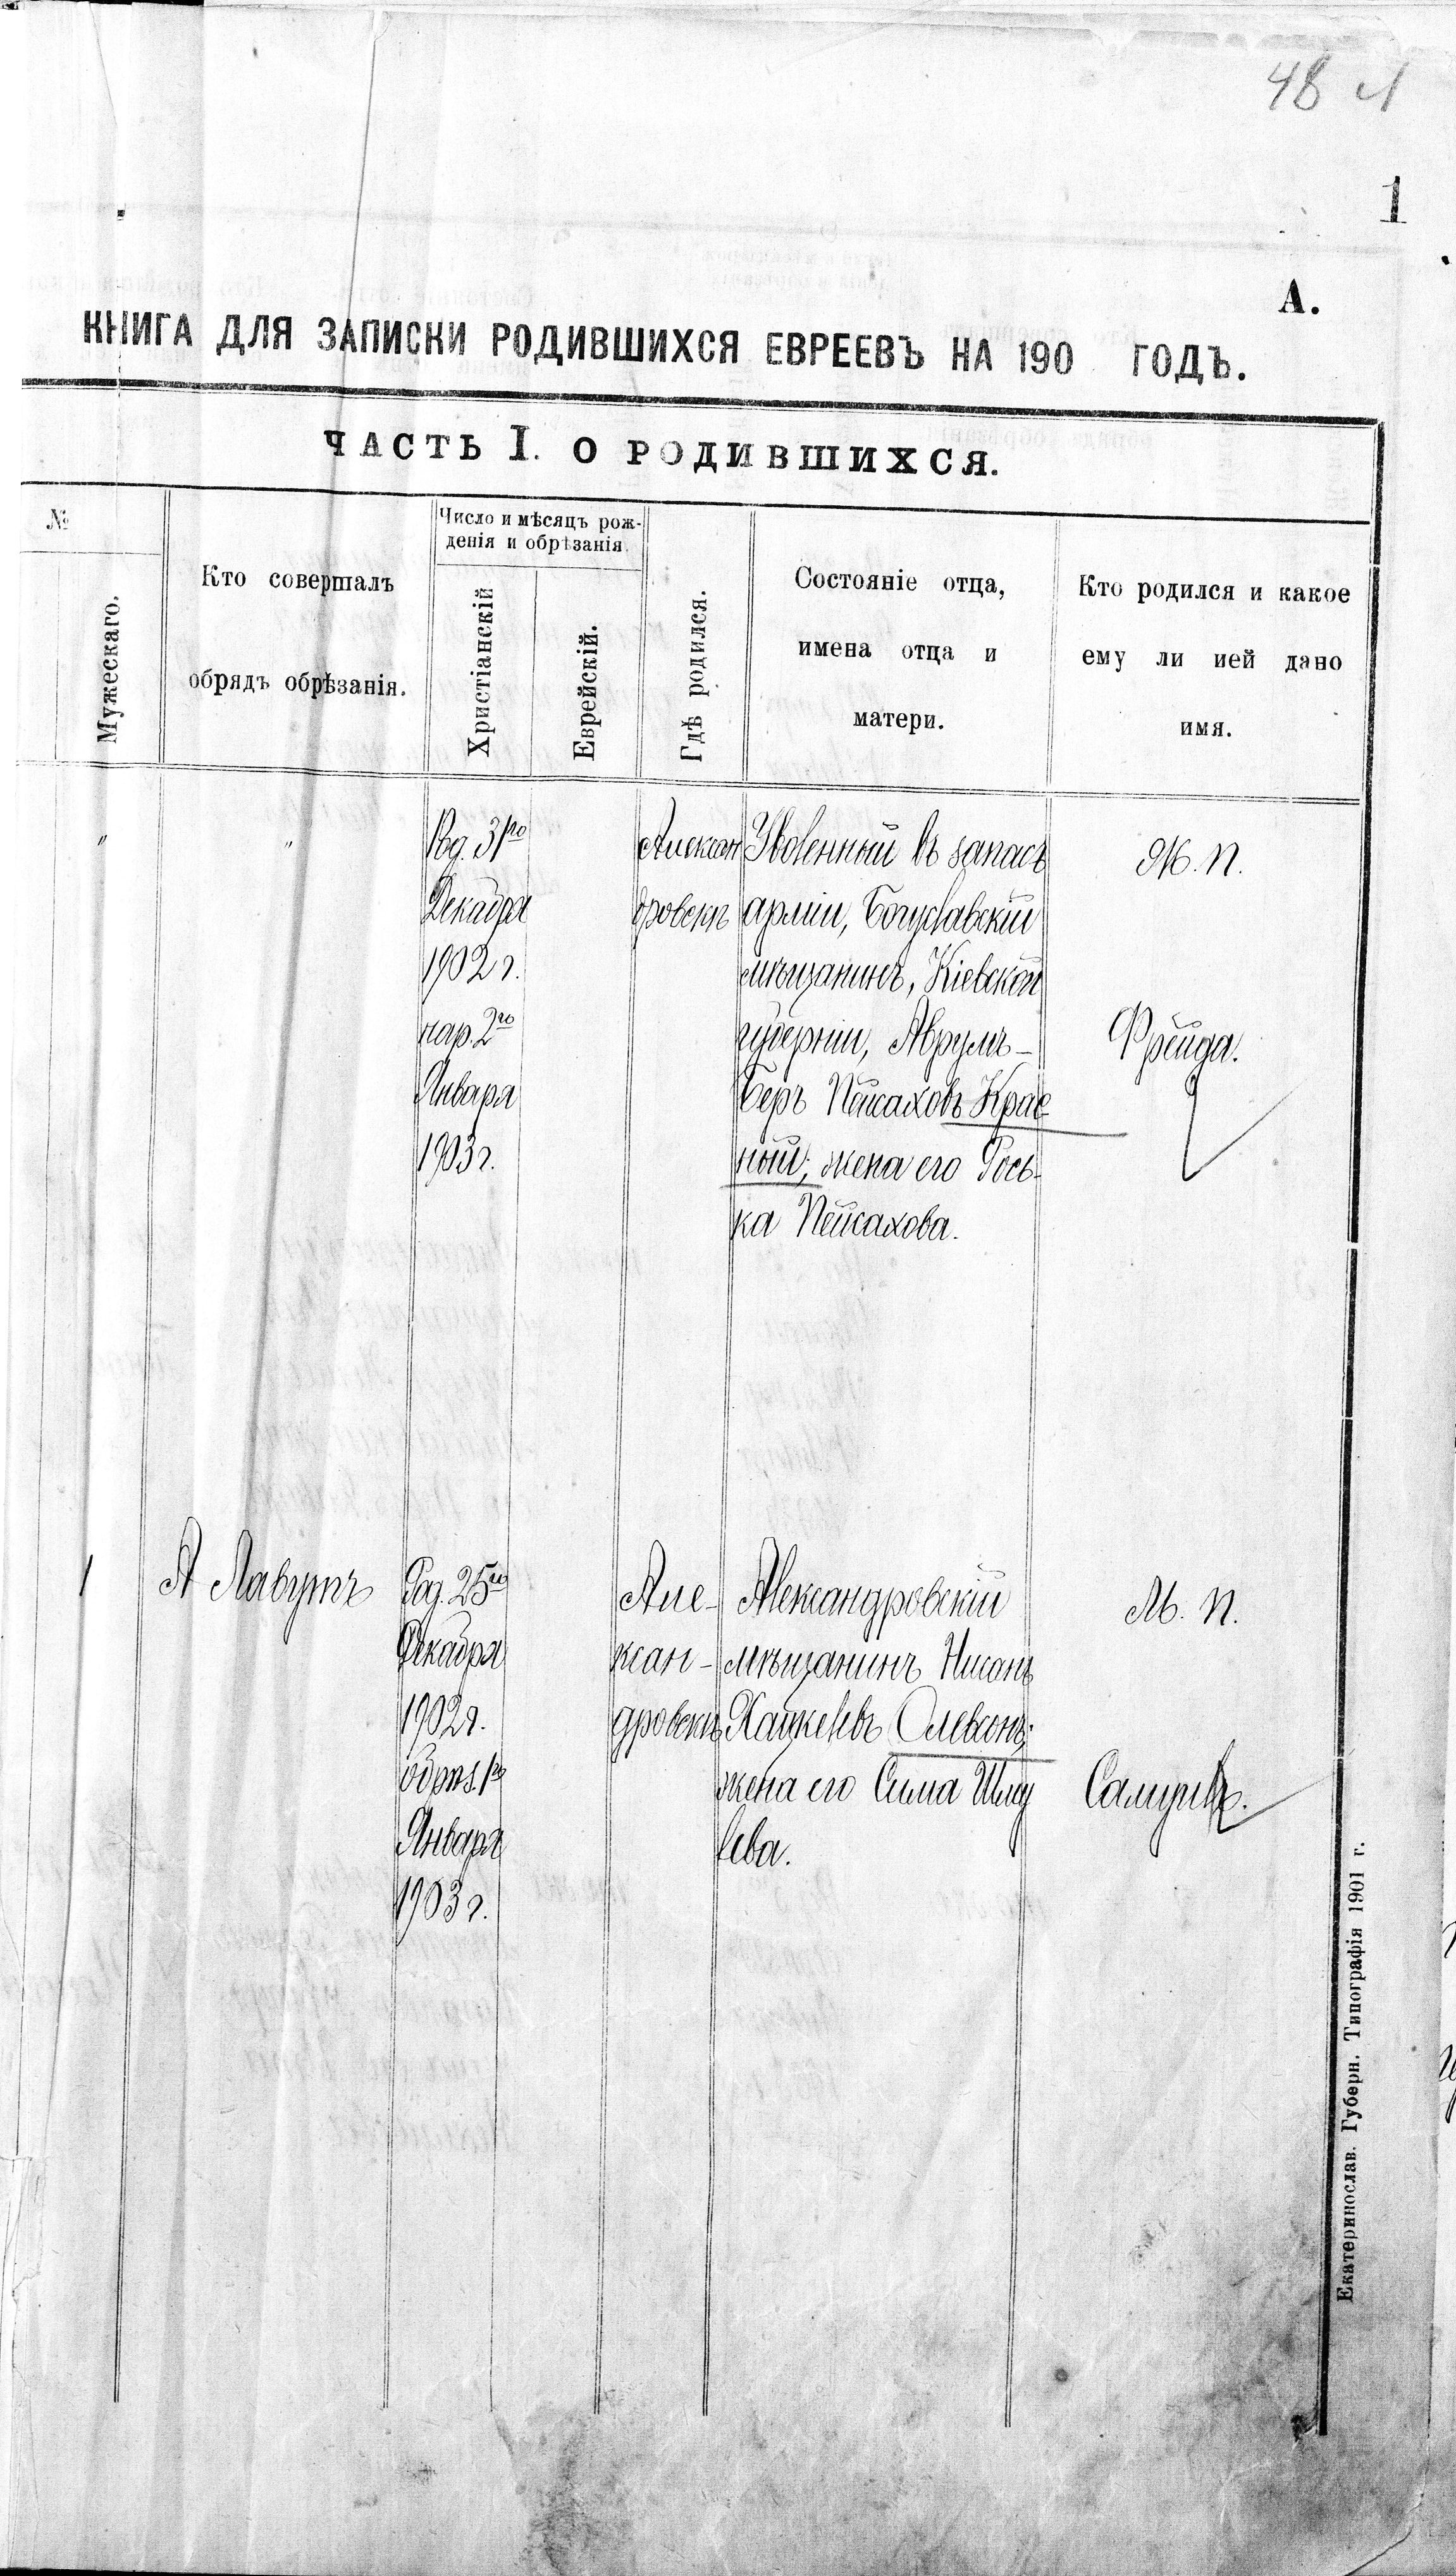 48
1
А.
КНИГА ДЛЯ ЗАПИСКИ РОДИВШИХСЯ ЕВРЕЕВЪ НА 190 ГОДЪ.
ЧАСТЬ I. О РОДИВШИХСЯ.
№
Мужескаго.
Кто совершалъ
обрядъ обрѣзанія.
Число и мѣсяцъ рож-
денія и обрѣзанія.
Христіанскій
Еврейскій.
Гдѣ родился.
Состояніе отца,
имена отца и
матери.
Кто родился и какое
ему ли ией дано
имя.
"
"
Род. 31го
Декабря
1902 г.
нар. 2го
Января
1903 г.
Алексан
дровскѣ
Уволенный въ запасъ
арміи, Богуславскій
мѣщанинъ, Кіевской
губерніи, Аврумъ-
Беръ Пейсаховъ Крас
ный; жена его Рось-
ка Пейсахова.
Ж. П.
Фрейда.
1
А Лавутъ
Род. 25го
Декабря
1902 г.
обрѣз. 1го
Января
1903 г.
Але-
ксан-
дровскѣ
Александровскій
мѣщанинъ Нисонъ
Хацкелевъ Олевсонъ;
жена его Сима Шму
лева.
М. П.
Самуилъ.
Екатеринослав. Губерн. Типографія 1901 г.